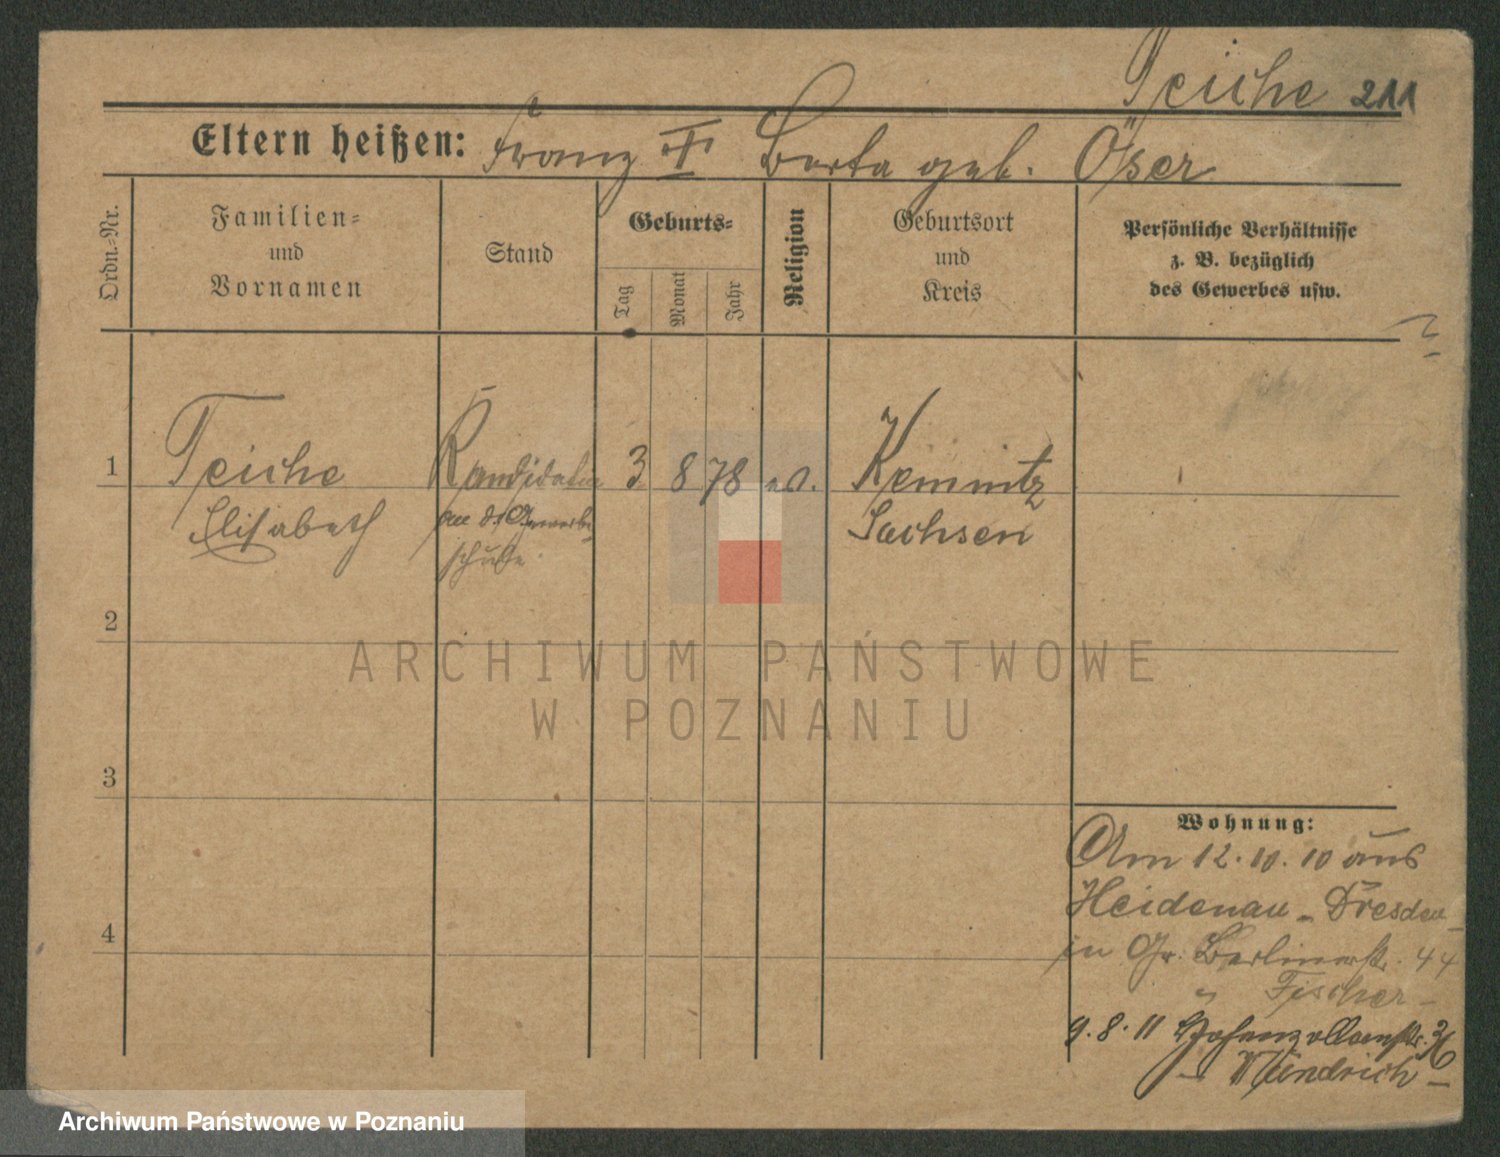 Teiche 211
Eltern heißen: Franz † Berta geb. Öser
Ordn.=Nr.
Familien=
und
Vornamen
Stand
Geburts=
Tag
Monat
Jahr
Religion
Geburtsort
und
Kreis
Persönliche Verhältnisse
z. B. bezüglich
des Gewerbes usw.
1 Teiche Kandidatin 3 8 78 ev. Kemnitz
Elisabeth an d. Gewerbe
schule Sachsen
2
3
4
Wohnung:
Am 12.10.10 aus
Heidenau - Dresden
in Gr. Berlinerstr. 44
" Fischer -
9.8.11 Hohenzollernstr. 36
- Mündrich -
ARCHIWUM PAŃSTWOWE
W POZNANIU
Archiwum Państwowe w Poznaniu